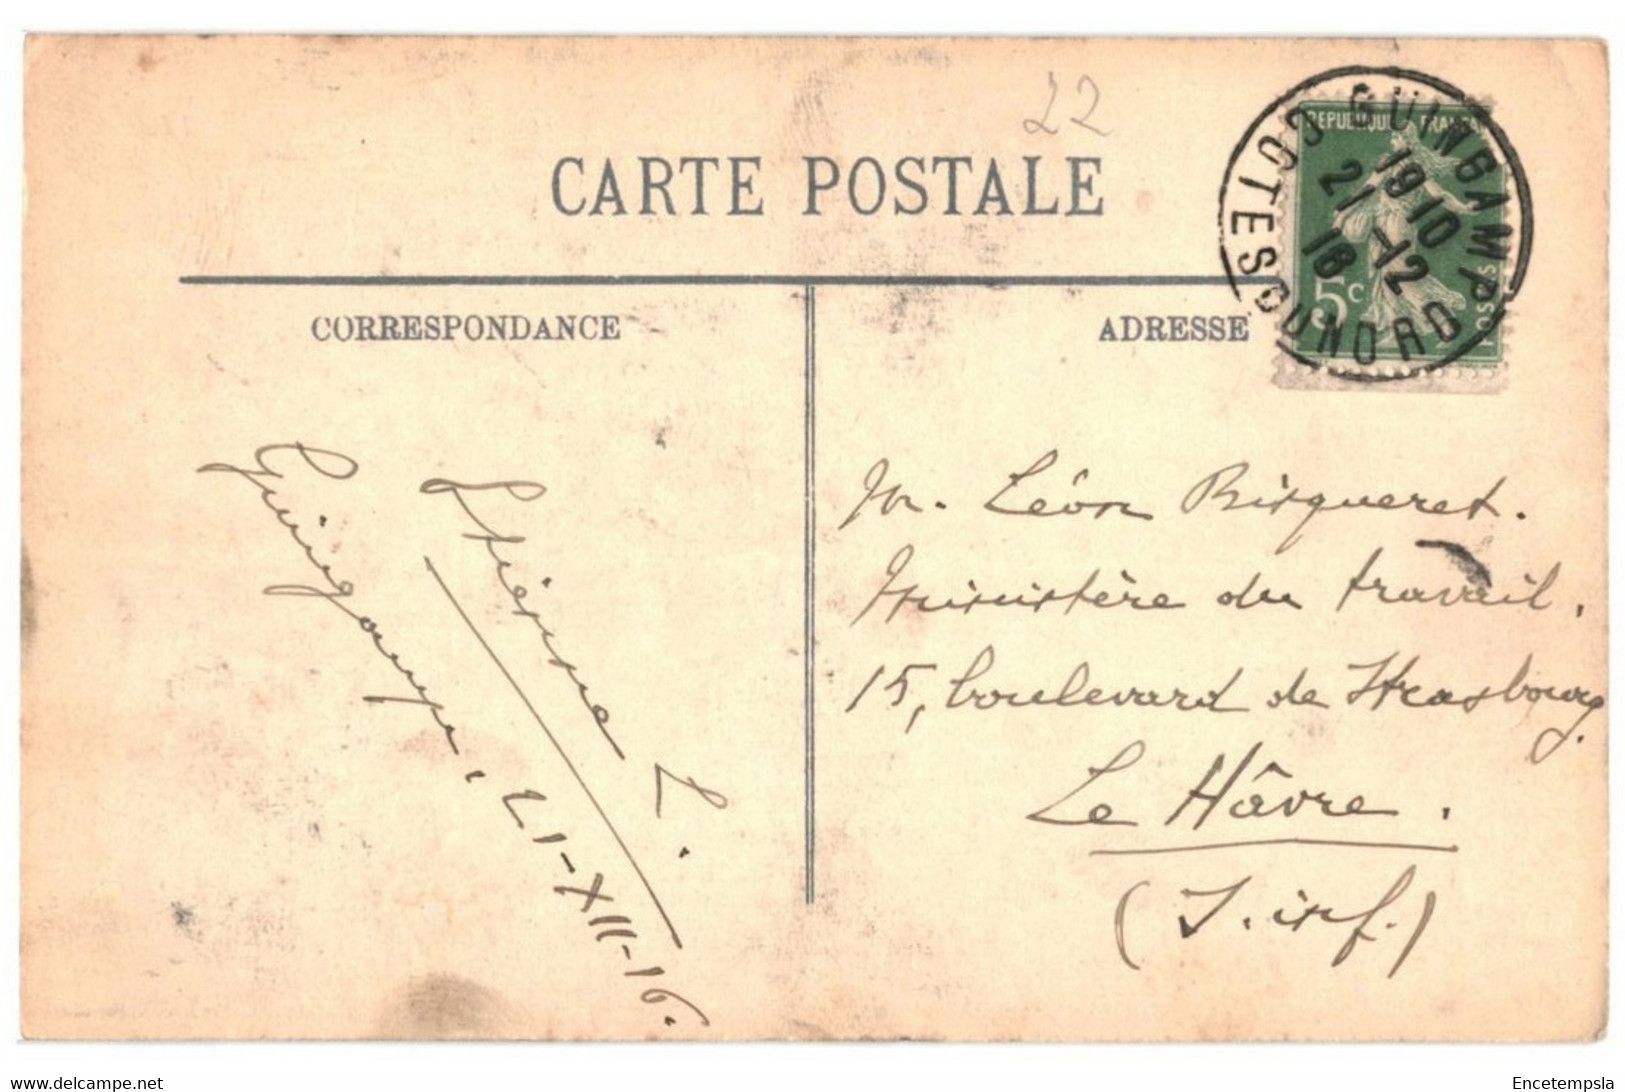 22
CARTE POSTALE
CORRESPONDANCE
ADRESSE
REPUBLIQUE FRANÇAI
5c
POSTES
GUINGAMP
19 10
21-12
16
COTES DU NORD
M. Léon Bisqueret.
Ministère du travail.
15, boulevard de Strasbourg.
Le Hâvre.
(S. inf.)
Etienne L.
Guingamp, 21-XII-16.
www.delcampe.net
Encetempsla